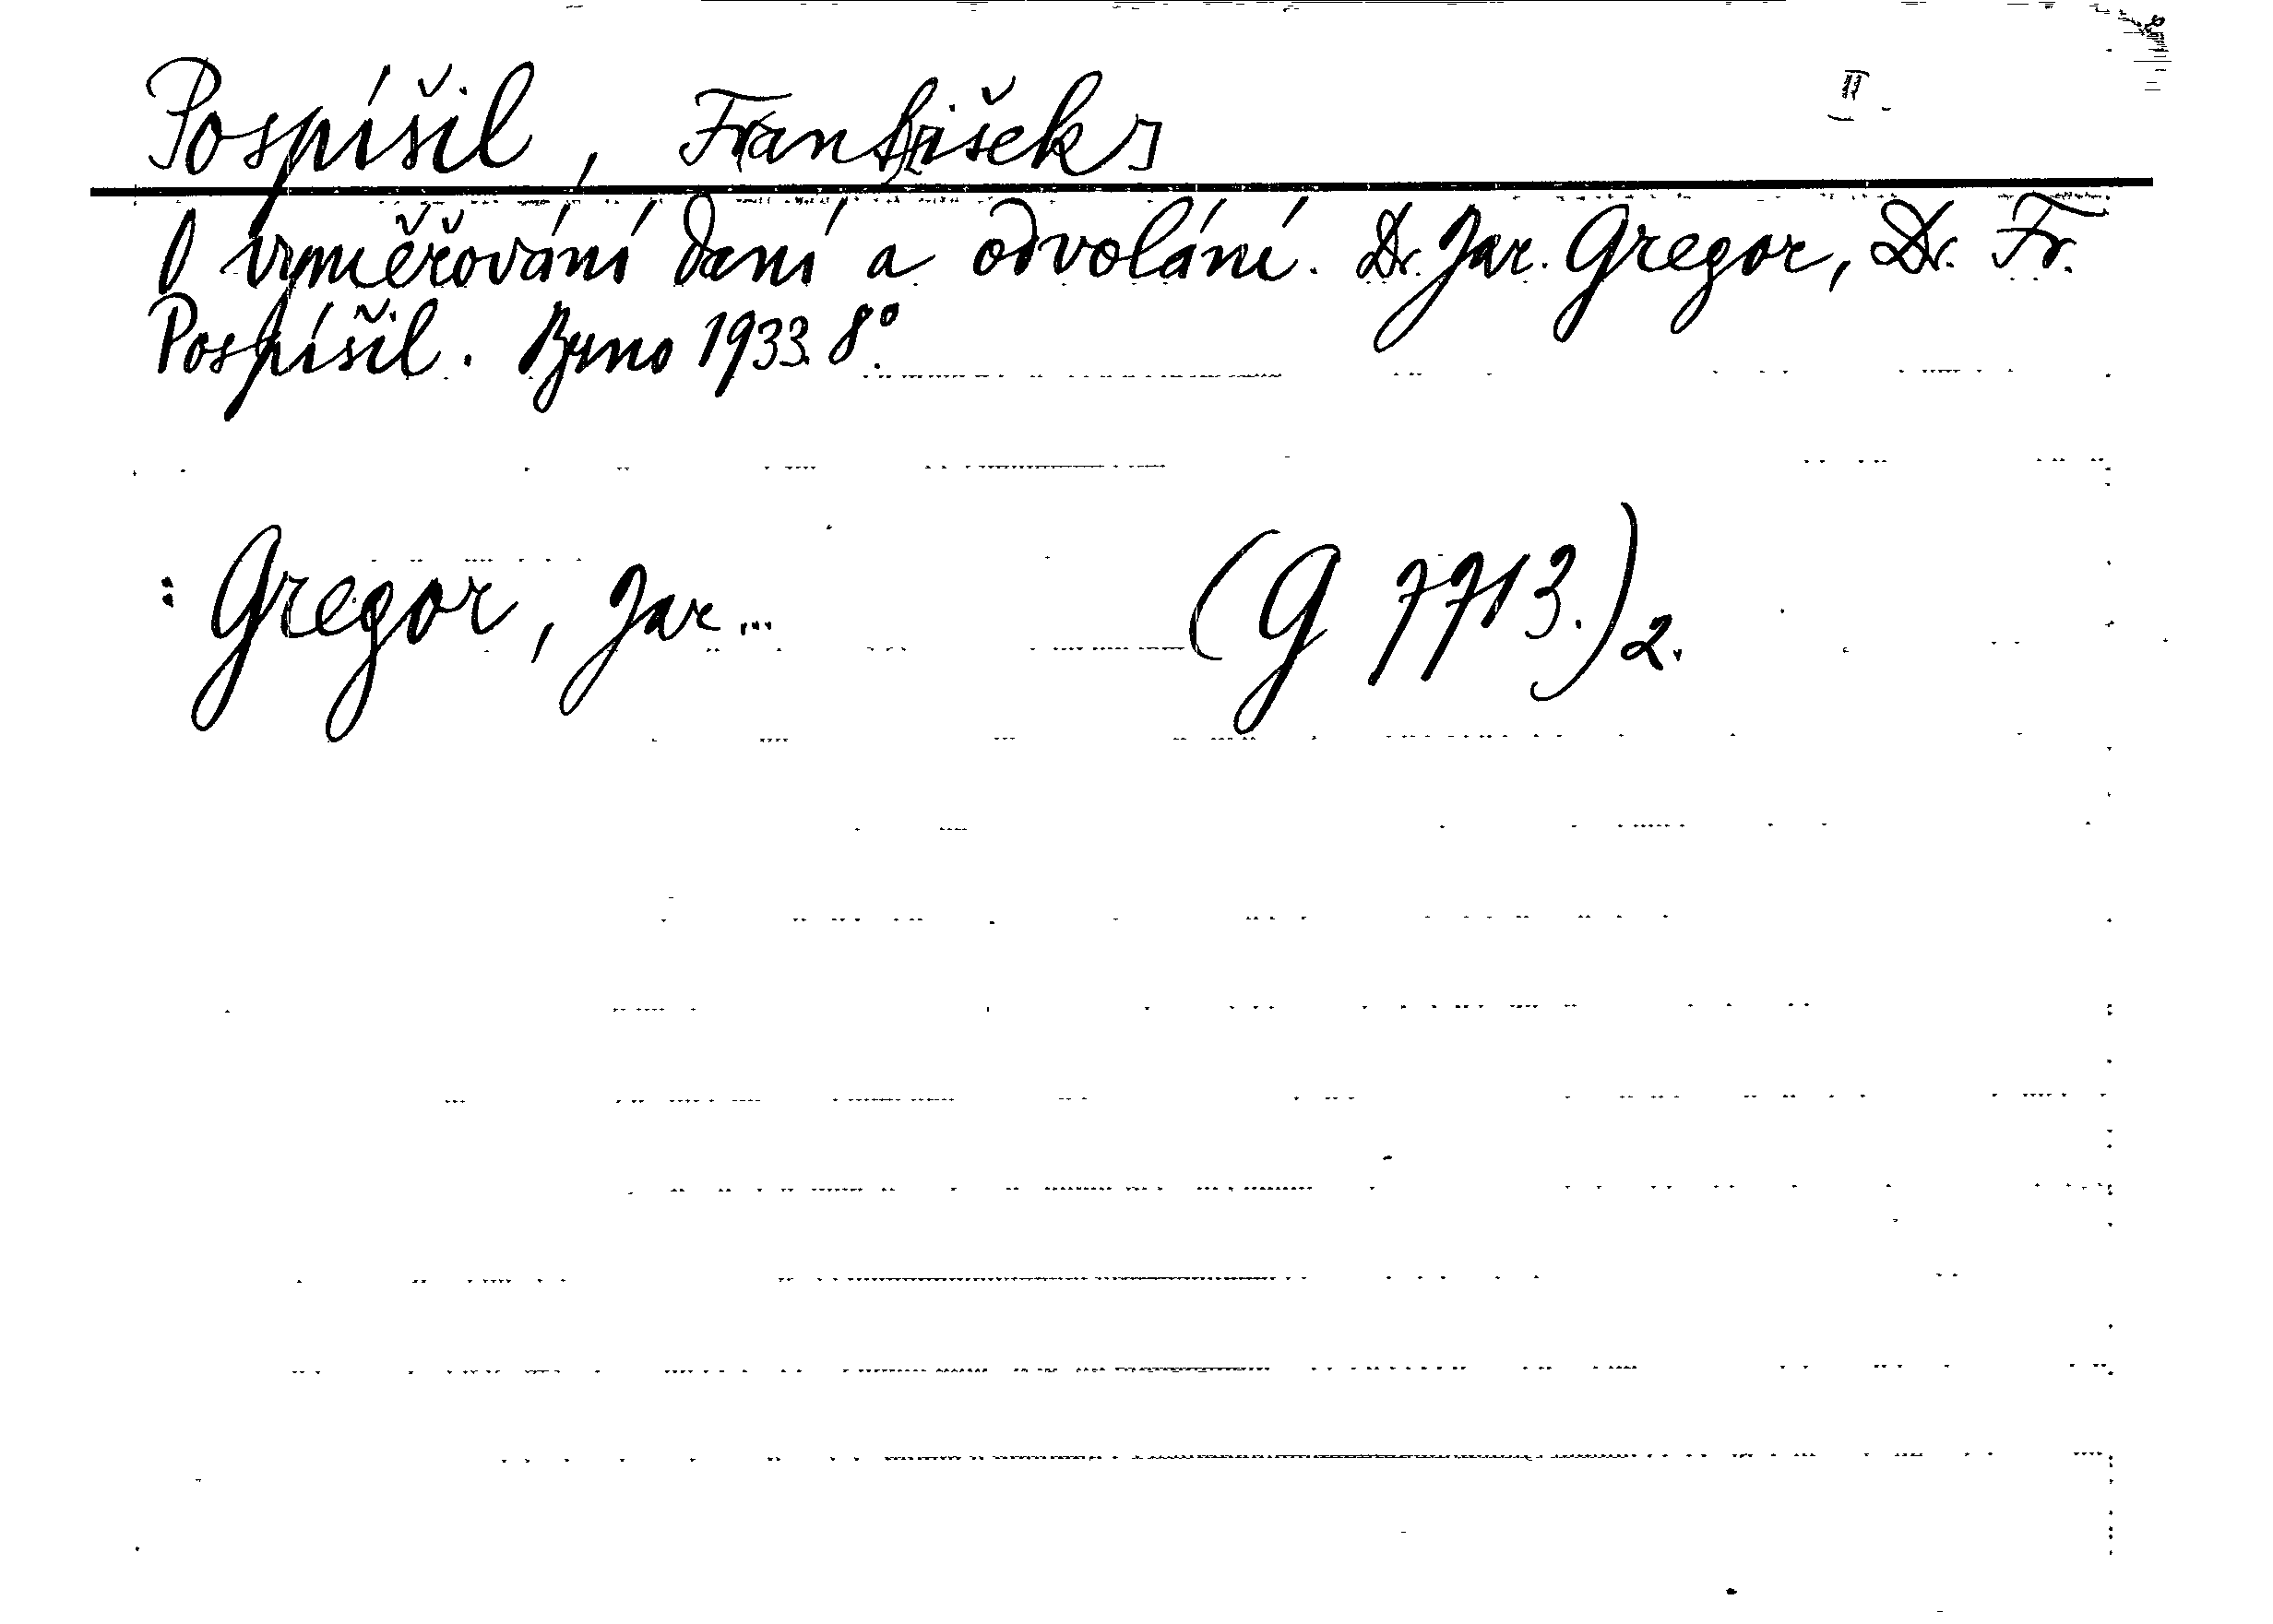 Pospíšil, Fr[antišek] II.
O vyměřování daní a odvolání. Dr. Jar. Gregor, Dr. Fr.
Pospíšil. Brno 1933. 8°.
: Gregor, Jar... (G 7713.)2.